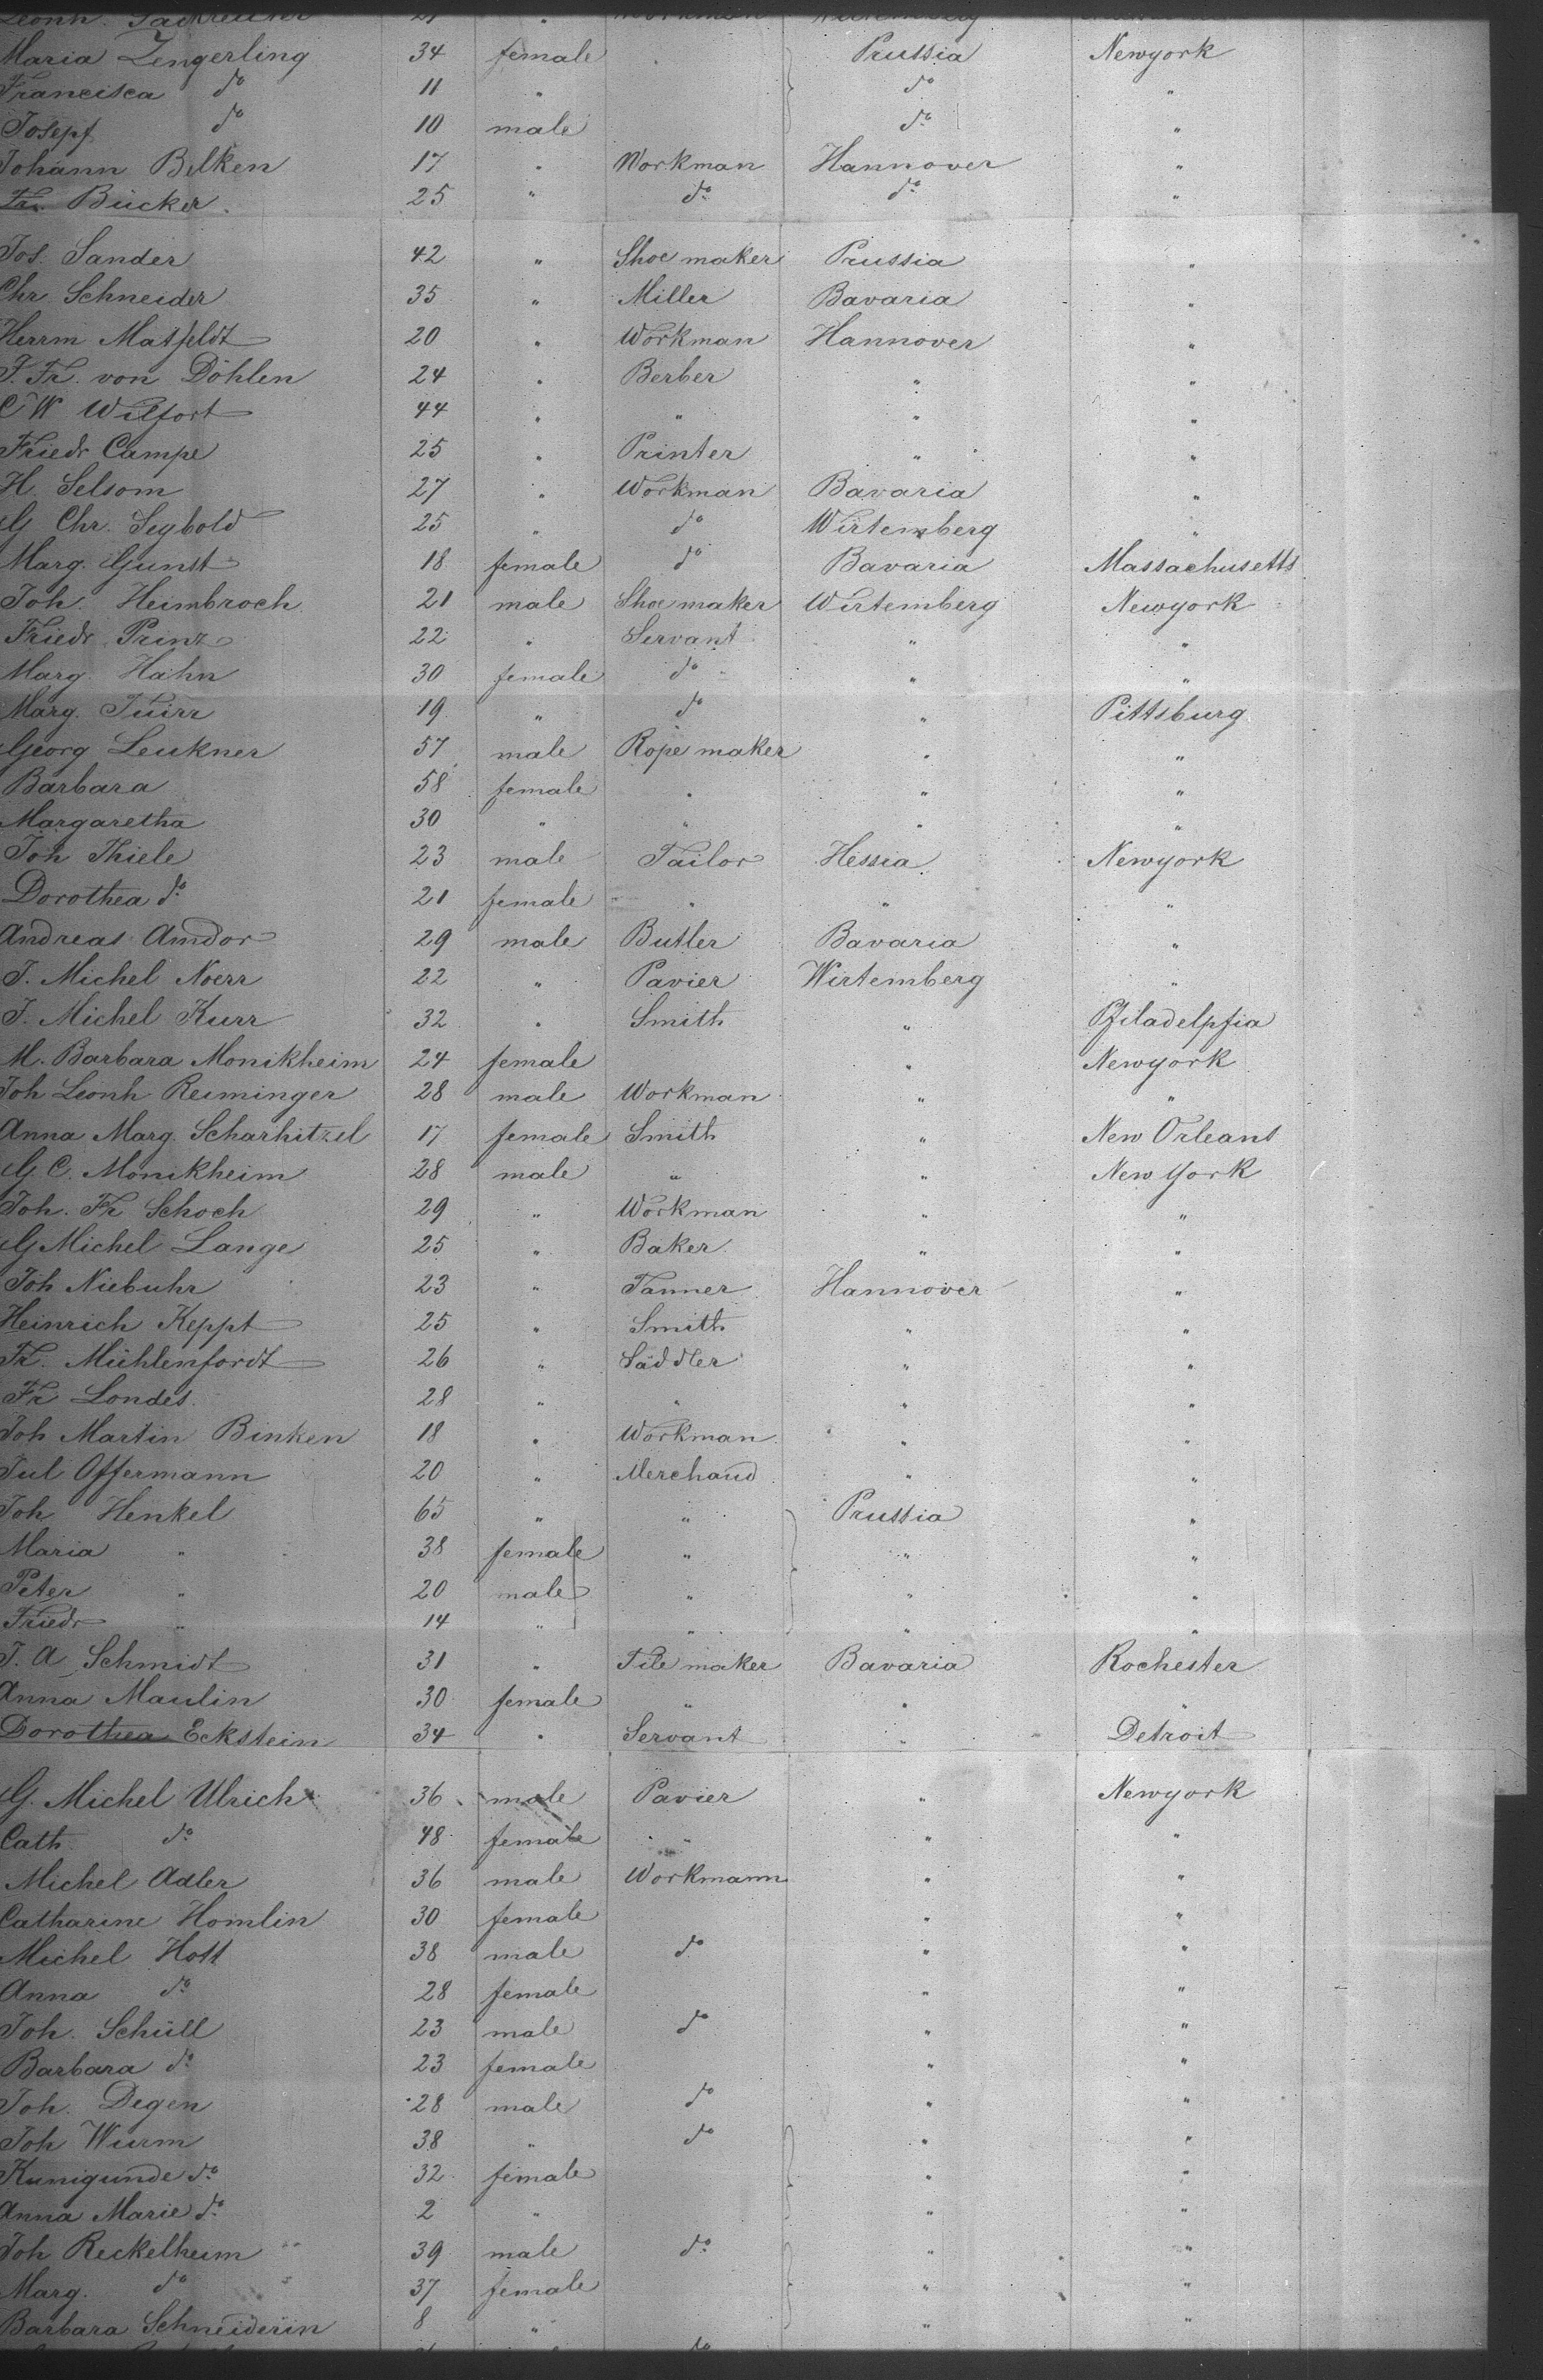 Leonh.
Maria Zengerling 34 female Prussia Newyork
Francisca do 11 " do "
Josepf do 10 male do "
Johann Bilken 17 " Workman Hannover "
Fr. Bücker 25 " do do "
Jos. Sander 42 " Shoe maker Prussia "
Chr. Schneider 35 " Miller Bavaria "
Herrm Matfeldt 20 " Workman Hannover "
J. Fr. von Döhlen 24 " Berber " "
C W Wilfort 44 " " " "
Friedr Campe 25 " Printer " "
H. Selsom 27 " Workman Bavaria "
G Chr. Seybold 25 " do Wirtemberg "
Marg. Gunst 18 female do Bavaria Massachusetts
Joh. Heimbroch 21 male Shoe maker Wirtemberg Newyork
Friedr Prinz 22 " Servant " "
Marg. Hahn 30 female do " "
Marg. 19 " do " Pittsburg
Georg Leukner 57 male Rope maker " "
Barbara 58 female " " "
Margaretha 30 " " " "
Joh Thiele 23 male Tailor Hessia Newyork
Dorothea do 21 female " " "
Andreas Amdor 29 male Butler Bavaria "
J. Michel Noerr 22 " Pavier Wirtemberg "
J. Michel Kurr 32 " Smith " Pfiladelpfia
M. Barbara Monikheim 24 female " Newyork
Joh Leonh Reiminger 28 male Workman " "
Anna Marg. Scharhitzel 17 female Smith " New Orleans
G. C. Monikheim 28 male " " New York
Joh. Fr Schoch 29 " Workman " "
G Michel Lange 25 " Baker " "
Joh Niebuhr 23 " Tanner Hannover "
Heinrich Keppt 25 " Smith " "
Fr. Mühlenfordt 26 " Säddler " "
Fr Londes 28 " " " "
Joh Martin Binken 18 " Workman " "
Jul Offermann 20 " Merchand " "
Joh Henkel 65 " " Prussia "
Maria " 38 female " " "
Peter " 20 male " " "
Friedr " 14 " " " "
J. A. Schmidt 31 " Tile maker Bavaria Rochester
Anna Maulin 30 female " " "
Dorothea Eckstein 34 " Servant " Detroit
G. Michel Ulrich 36 male Pavier " Newyork
Cath. do 48 female " " "
Michel Adler 36 male Workmann " "
Catharine Homlin 30 female " "
Michel Hott 38 male do " "
Anna do 28 female " "
Joh. Schüll 23 male do " "
Barbara do 23 female " "
Joh. Degen 28 male do " "
Joh Wurm 38 " do " "
Kunigunde do 32 female " "
Anna Marie do 2 " " "
Joh Reckelheim 39 male do " "
Marg. do 37 female " "
Barbara Schneiderin 8 " " "
do